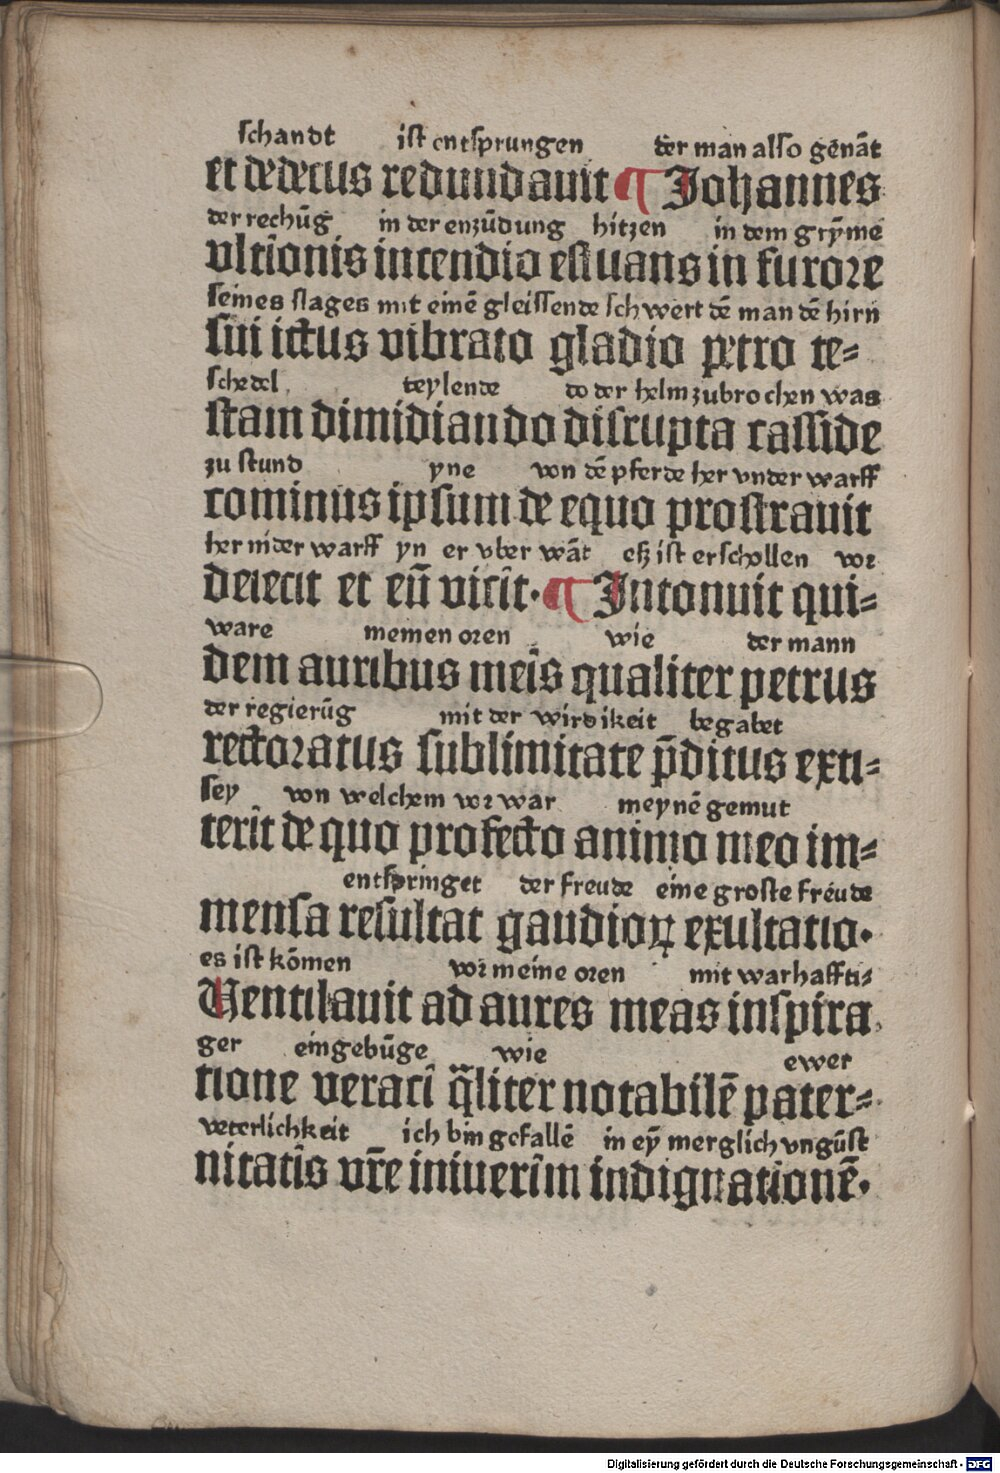 schandt ist entsprungen der man also genāt
et dedecus redundauit ¶ Johannes
der rechūg in der enzūdung hitzen in dem grȳmē
vltiōnis incendio estuans in furore
seines slages mit einē gleissende schwert dē man dē hirn
sui ictus vibrato gladio petro te⸗
schedel teylende do der helm zubrochen was
stam dimidiando discrupta casside
zu stund yne von dē pferde her vnder warff
cominus ipsum de equo prostrauit
her nider warff yn er vber wāt eß ist erschollen vor
deiecit et eū vicit. ¶ Intonuit qui⸗
ware meinen oren wie der mann
dem auribus meis qualiter petrus
der regierūg mit der wirdikeit begabet
rectoratus sublimitate p̄ditus exti⸗
sey von welchem vor war meynē gemut
terit de quo profecto animo meo im⸗
entspringet der freude eine groste freude
mensa resultat gaudioꝝ exultatio.
es ist kōmen vor meine oren mit warhaffti⸗
Uentilauit ad aures meas inspira
ger eingebūge wie ewer
tione veraci q̄liter notabilē pater⸗
veterlichkeit ich bin gefallē in eȳ merglich vngūst
nitatis vr̄e iniuerim indignationē.
Digitalisierung gefördert durch die Deutsche Forschungsgemeinschaft - DFG